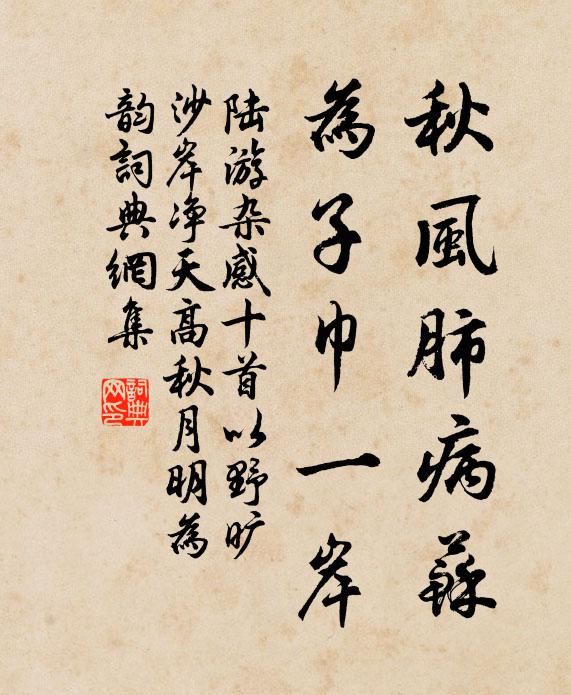 秋風肺病蘇
為子巾一岸
陆游杂感十首以野旷
沙岸净天高秋月明為
韵詞典網集
詞典网印